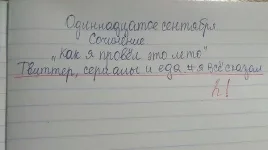 Одиннадцатое сентября
Сочинение
„Как я провёл это лето"
Твиттер, сериалы и еда, и я всё сказал